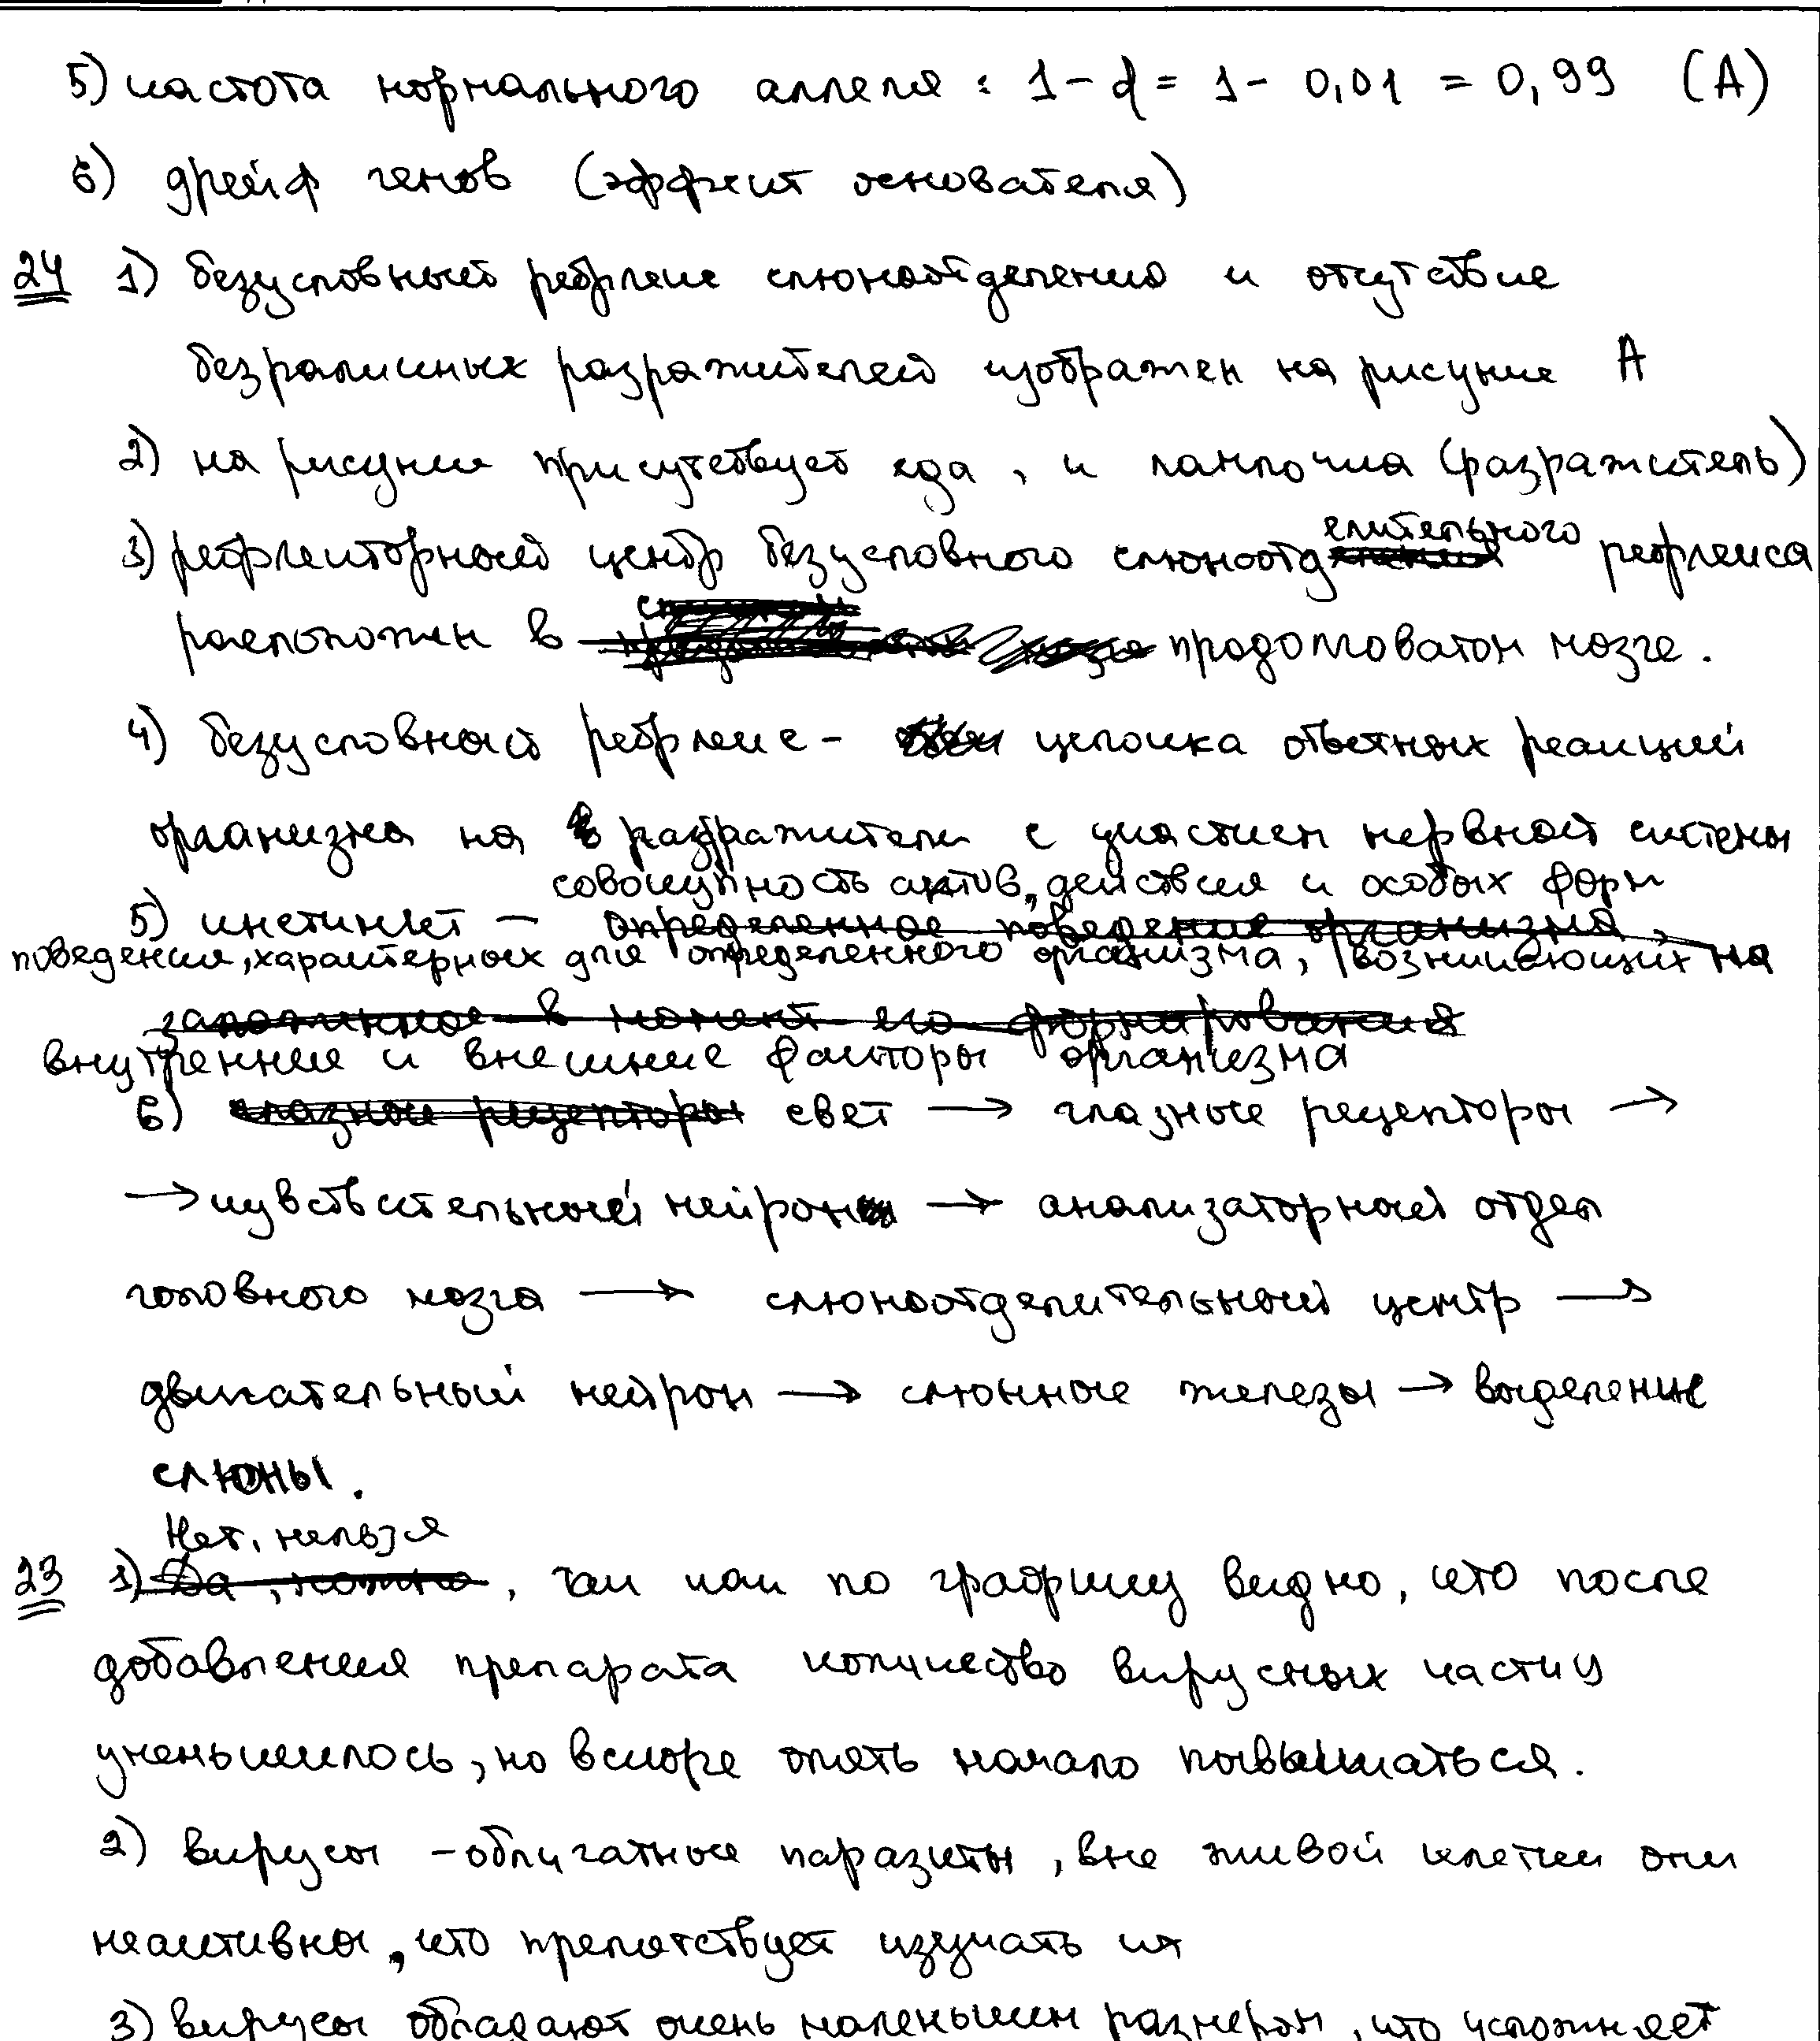 5) частота нормального аллеля : 1 - d = 1 - 0,01 = 0,99 (А)
6) дрейф генов (эффект основателя)
24 1) безусловный рефлекс слюноотделения и отсутствие
безразличных раздражителей изображен на рисунке А
2) на рисунке присутствует еда, и лампочка (разражитель)
3) рефлекторный центр безусловного слюноотделительного рефлекса
расположен в продолговатом мозге.
4) безусловный рефлекс - цепочка ответных реакций
организма на раздражители с участием нервной системы
5) инстинкт - совокупность актов, действия и особых форм
поведения, характерных для определенного организма, возникающих на
внутренние и внешние факторы организма
6) свет → глазные рецепторы →
→ чувствительный нейрон → анализаторный отдел
головного мозга → слюноотделительный центр →
двигательный нейрон → слюнные железы → выделение
слюны.
Нет, нельзя
23 1) ~~Да, можно~~, так как по графику видно, что после
добавления препарата количество вирусных частиц
уменьшилось, но вскоре опять начало повышаться.
2) вирусы - облигатные паразиты, вне живой клетки они
неактивны, что препятствует изучать их
3) вирусы обладают очень маленьким размером, что усложняет